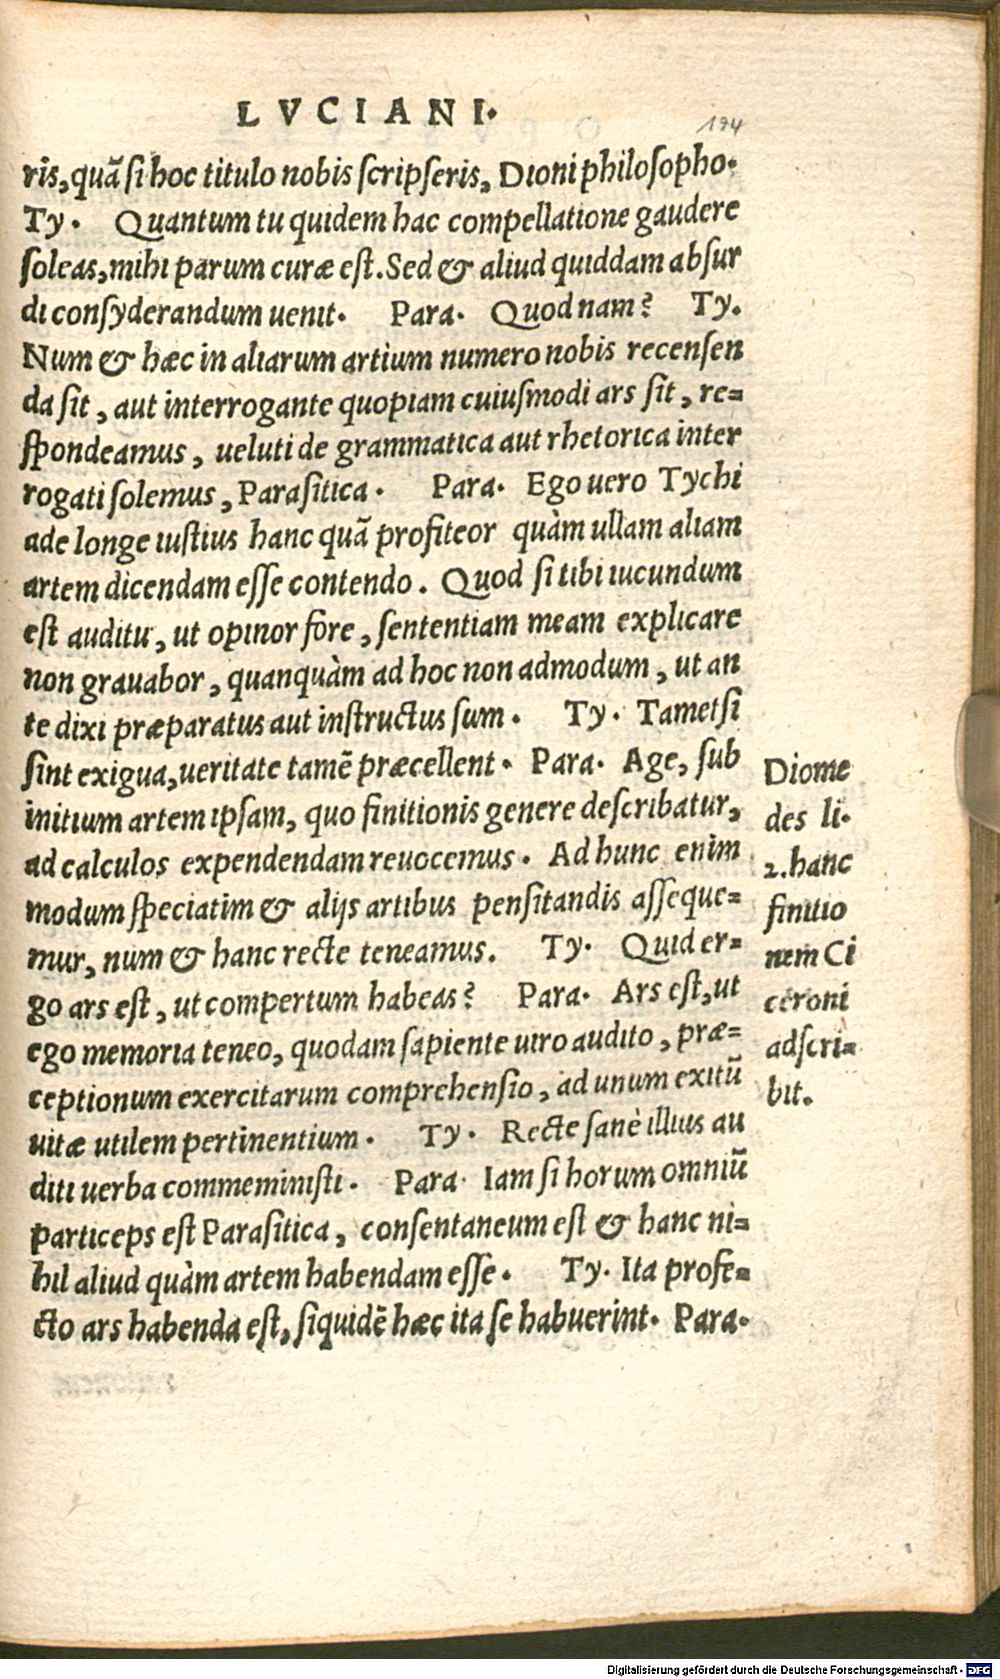 LVCIANI.
194
ris, quã si hoc titulo nobis scripseris, Dioni philosopho.
Ty. Quantum tu quidem hac compellatione gaudere
soleas, mihi parum curæ est. Sed & aliud quiddam absur
di consyderandum uenit. Para. Quod nam? Ty.
Num & hæc in aliarum artium numero nobis recensen
da sit, aut interrogante quopiam cuiusmodi ars sit, re=
spondeamus, ueluti de grammatica aut rhetorica inter
rogati solemus, Parasitica. Para. Ego uero Tychi
ade longe iustius hanc quã profiteor quàm ullam aliam
artem dicendam esse contendo. Quod si tibi iucundum
est auditu, ut opinor fore, sententiam meam explicare
non grauabor, quanquàm ad hoc non admodum, ut an
te dixi præparatus aut instructus sum. Ty. Tametsi
sint exigua, ueritate tamẽ præcellent. Para. Age, sub
initium artem ipsam, quo finitionis genere describatur,
ad calculos expendendam reuocemus. Ad hunc enim
modum speciatim & alijs artibus pensitandis asseque=
mur, num & hanc recte teneamus. Ty. Quid er=
go ars est, ut compertum habeas? Para. Ars est, ut
ego memoria teneo, quodam sapiente uiro audito, præ=
ceptionum exercitarum comprehensio, ad unum exitũ
uitæ utilem pertinentium. Ty. Recte sanè illius au
diti uerba commeministi. Para. Iam si horum omniũ
particeps est Parasitica, consentaneum est & hanc ni=
hil aliud quàm artem habendam esse. Ty. Ita profe=
cto ars habenda est, siquidẽ hæc ita se habuerint. Para.
Diome
des li.
2. hanc
finitio
nem Ci
ceroni
adscri=
bit.
Digitalisierung gefördert durch die Deutsche Forschungsgemeinschaft - DFG